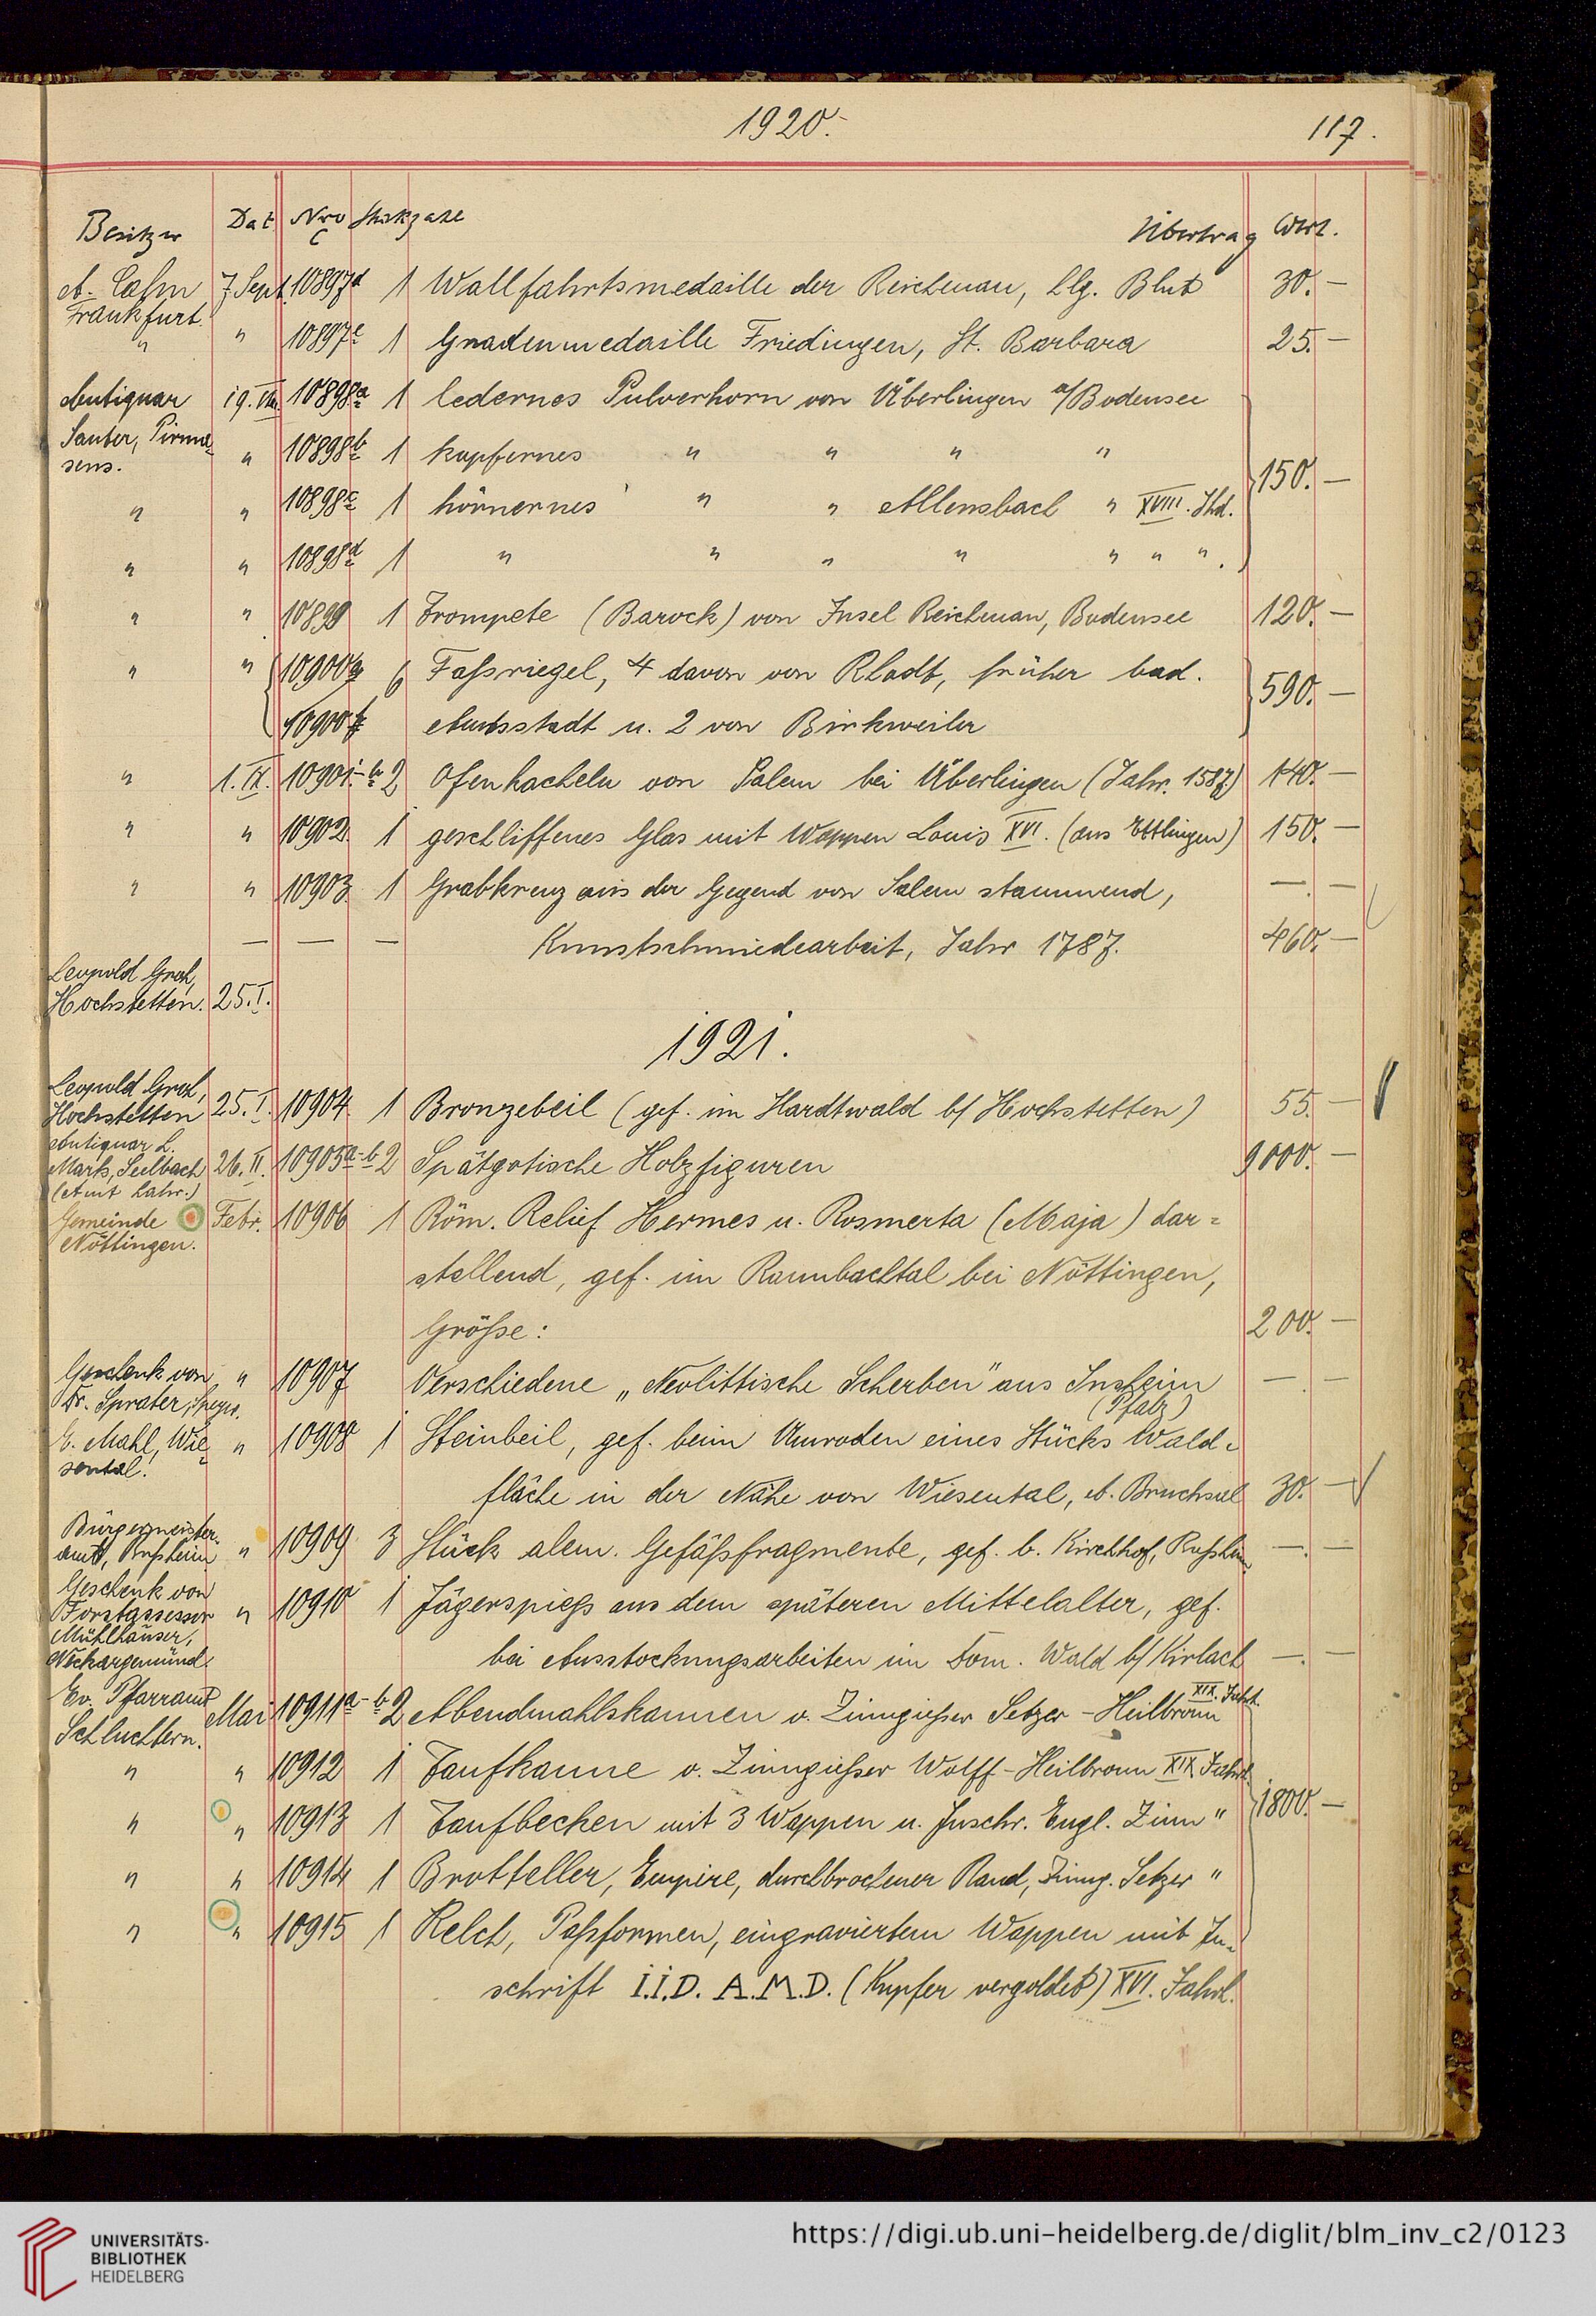 1920.
117.
Besitzer Dat Nro C Stückzahl Übertrag Wert.
A. Cahn 7 Sept. 10897d 1 Wallfahrtsmedaille der Reichenau, hlg. Blut 30.—
Frankfurt.
" " 10897e 1 Gnadenmedaille Friedingen, St. Barbara 25.—
Antiquar 19.VIII. 10898a 1 ledernes Pulverhorn von Überlingen a/Bodensee
Sauter, Pirma-
sens. " 10898b 1 kupfernes " " " "
150.—
" " 10898c 1 hörnernes " " Allensbach " XVIII. Jhd.
" " 10898d 1 " " " " " " ".
" " 10899 1 Trompete (Barock) von Insel Reichenau, Bodensee 120.—
" " 10900a 6 Faßriegel, 4 davon von Rhodt, früher bad.
590.—
10900f Amtsstadt u. 2 von Birkweiler
" 1.IX. 10901a-b 2 Ofenkacheln von Salem bei Überlingen (Jahr. 1587.) 140.—
" " 10902. 1 geschliffenes Glas mit Wappen Louis XVI. (aus Ettlingen) 150.—
" " 10903 1 Grabkreuz aus der Gegend von Salem stammend, —.—
— — — Kunstschmiedearbeit, Jahr 1787. 460.—
Leopold Groh,
Hochstetten. 25.I.
1921.
Leopold Groh,
Hochstetten 25.I. 10904 1 Bronzebeil (gef. im Hardtwald b/ Hochstetten) 55.—
Antiquar L.
Mark, Seelbach 26.II. 10905a-b 2 Spätgotische Holzfiguren 9000.—
(Amt Lahr.)
Gemeinde Febr. 10906 1 Röm. Relief Hermes u. Rosmerta (Maja) dar-
Nöttingen.
stellend, gef. im Rannbachtal bei Nöttingen,
Größe: 200.—
Geschenk von " 10907 Verschiedene „Neolittische Scherben" aus Insheim —.—
Dr. Sprater, Speyer. (Pfalz)
E. Mahl, Wie- " 10908 1 Steinbeil, gef. beim Umroden eines Stücks Wald-
sental.
fläche in der Nähe von Wiesental, A. Bruchsal 30.—
Bürgermeister-
amt, Rußheim " 10909 3 Stück alem. Gefäßfragmente, gef. b. Kirchhof, Rußheim —.—
Geschenk von
Forstassessor " 10910 1 Jägerspieß aus dem späteren Mittelalter, gef.
Mühlhäuser,
Neckargemünd. bei Ausstockungsarbeiten im Dom. Wald b/ Kirlach —.—
Ev. Pfarramt XIX. Jahrh.
Schluchtern. Mai 10911a-b 2 Abendmahlskannen v. Zinngießer Setzer - Heilbronn
" " 10912 1 Taufkanne v. Zinngießer Wolff - Heilbronn XIX. Jahrh.
1800.—
" " 10913 1 Taufbecken mit 3 Wappen u. Inschr. Engl. Zinn "
" " 10914 1 Brotteller, Empire, durchbrochener Rand, Zinng. Setzer "
" " 10915 1 Kelch, Paßformen, eingraviertem Wappen mit In-
schrift I.I.D. A.M.D. (Kupfer vergoldet) XVI. Jahrh.
UNIVERSITÄTS-
BIBLIOTHEK
HEIDELBERG
https://digi.ub.uni-heidelberg.de/diglit/blm_inv_c2/0123